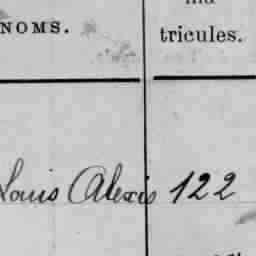 NOMS.
tricules.
Louis Alexis 122